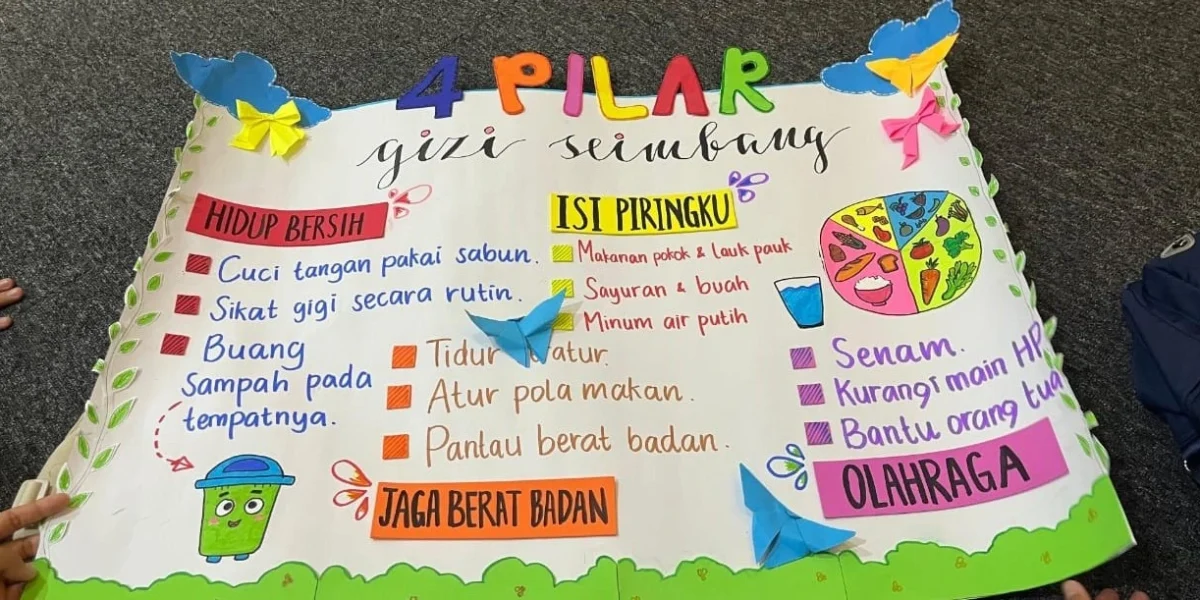 4 PILAR
gizi seimbang
HIDUP BERSIH
Cuci tangan pakai sabun.
Sikat gigi secara rutin.
Buang
Sampah pada
tempatnya.
ISI PIRINGKU
Makanan pokok & lauk pauk
Sayuran & buah
Minum air putih
Tidur
Atur pola makan.
Pantau berat badan.
JAGA BERAT BADAN
Senam.
Kurangi main HP
Bantu orang tua
OLAHRAGA